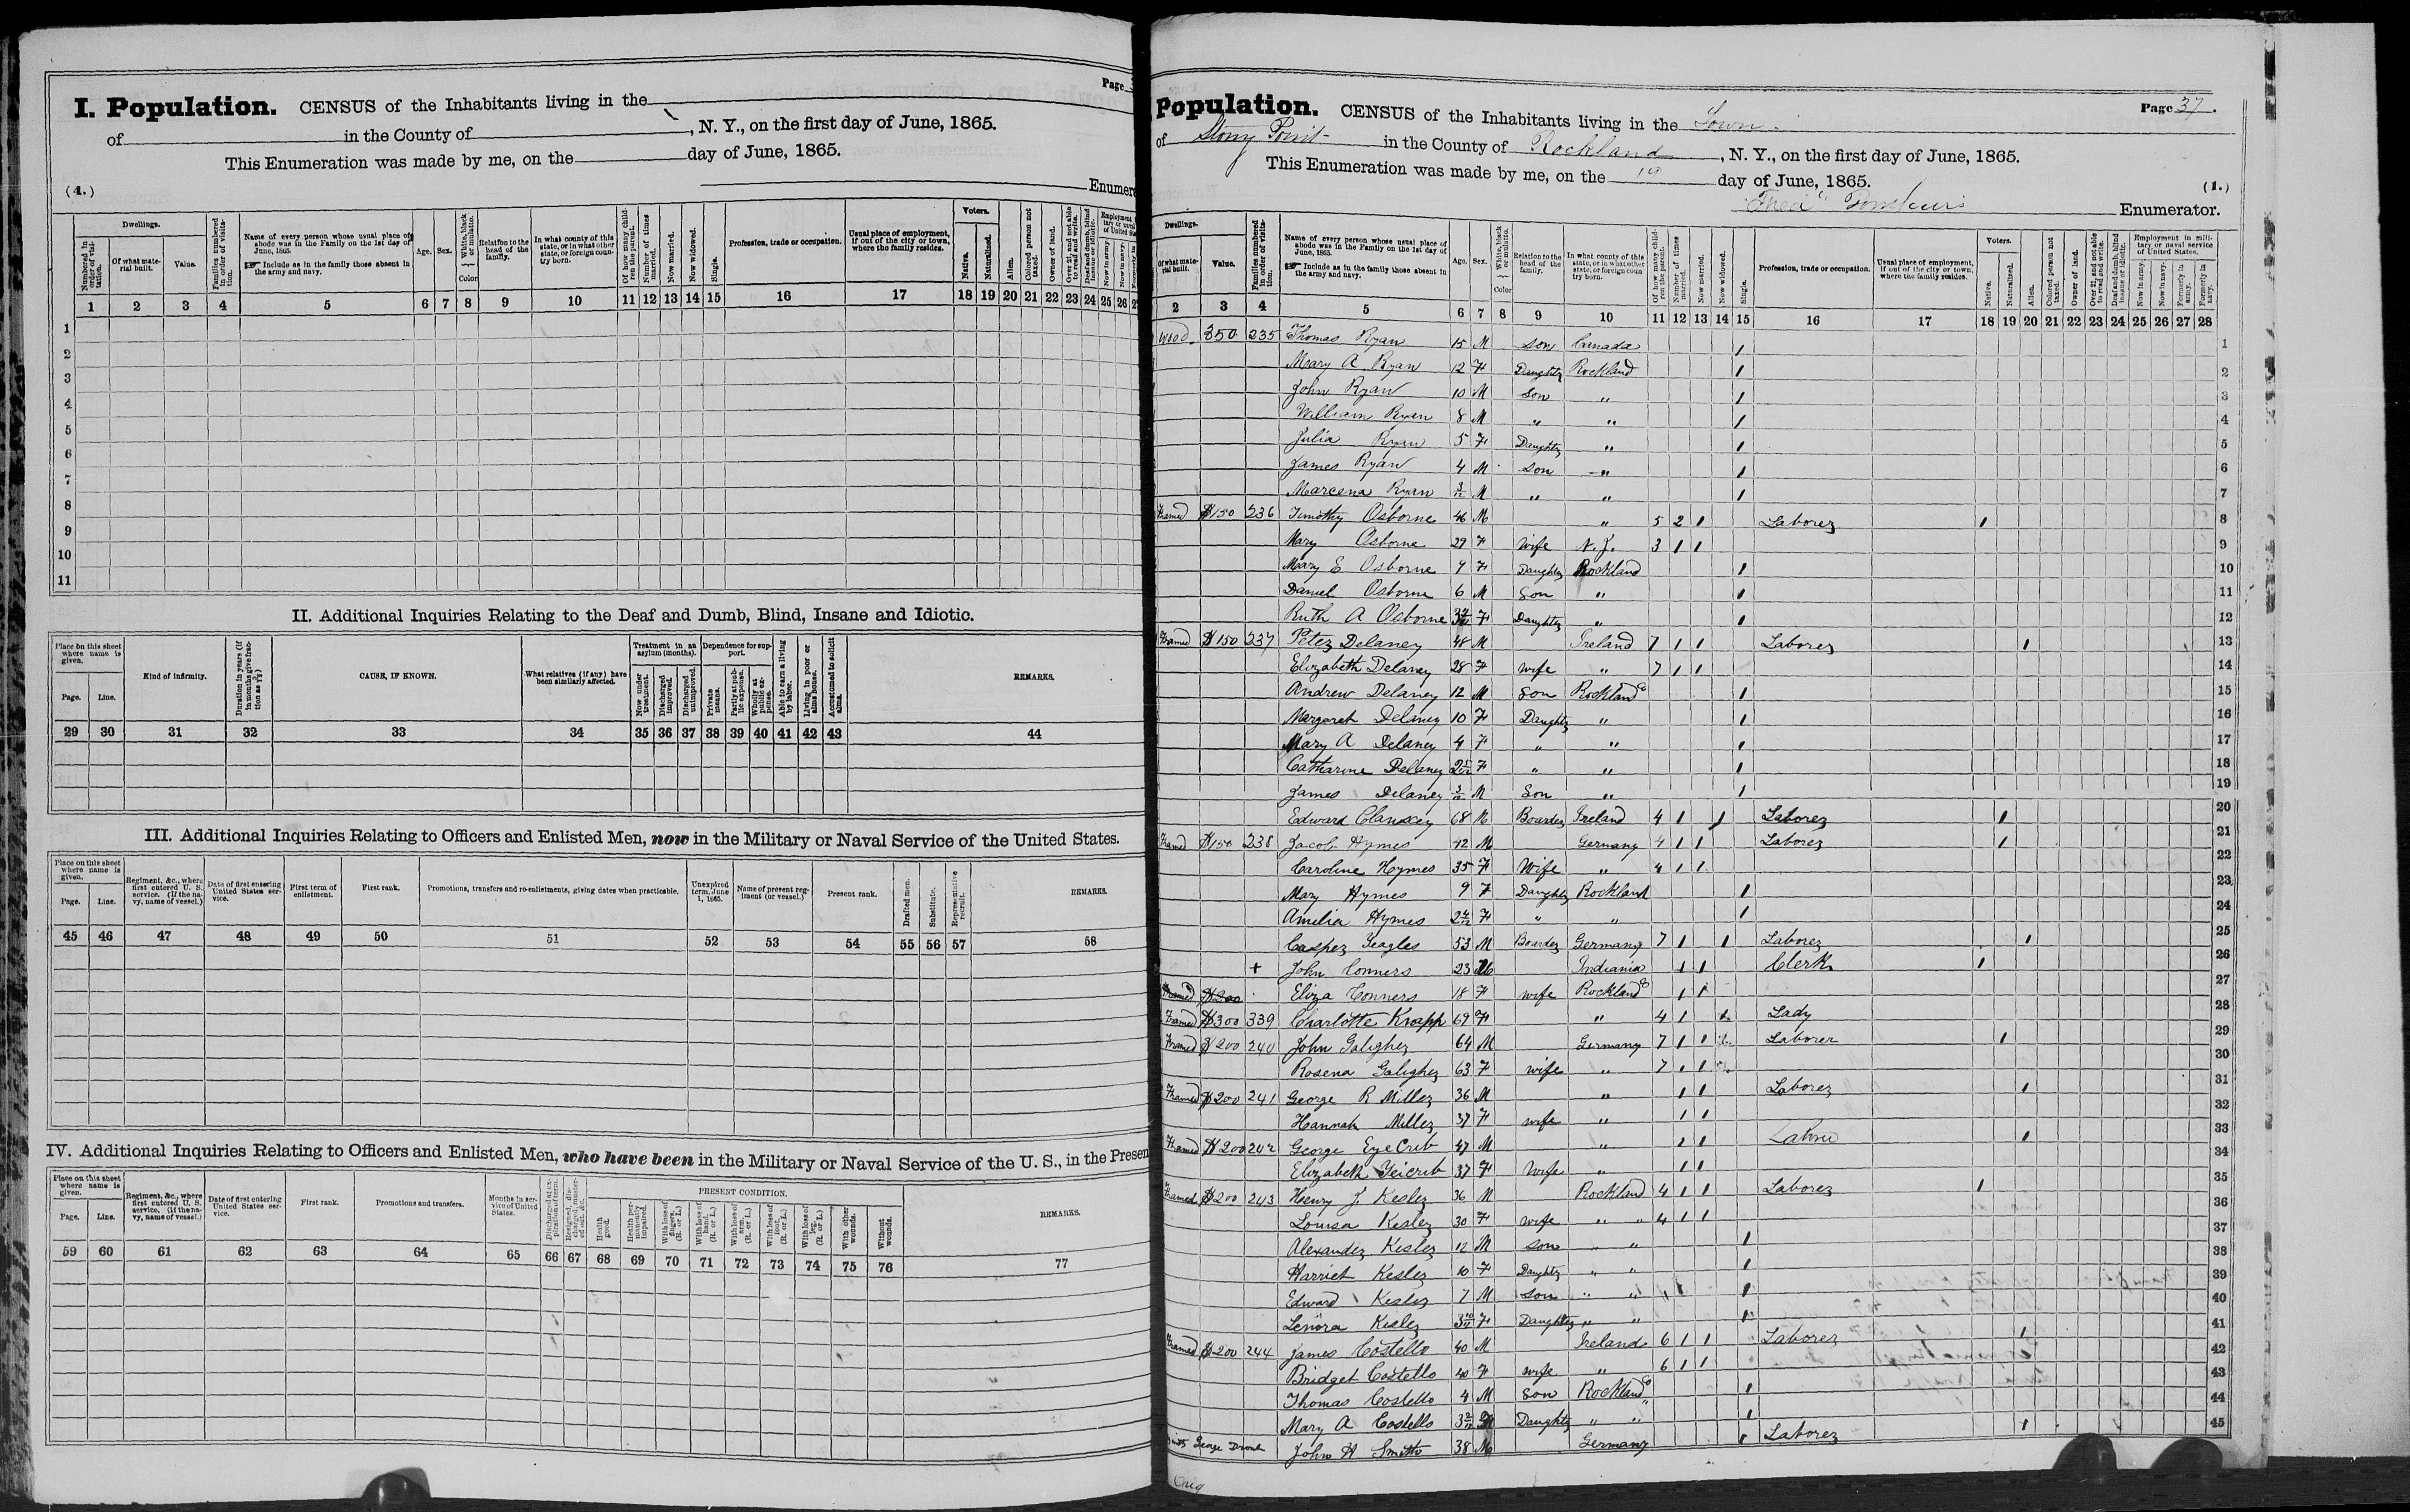 Page
I. Population. CENSUS of the Inhabitants living in the
of in the County of , N. Y., on the first day of June, 1865.
This Enumeration was made by me, on the day of June, 1865.
(4.)
Enumera
Dwellings.
Numbered in order of visitation.
Of what material built.
Value.
Families numbered in order of visitation.
Name of every person whose usual place of abode was in the Family on the 1st day of June, 1865.
Include as in the family those absent in the army and navy.
Age.
Sex.
White, black or mulatto.
Color
Relation to the head of the family.
In what county of this state, or in what other state, or foreign country born.
Of how many children the parent.
Number of times married.
Now married.
Now widowed.
Single.
Profession, trade or occupation.
Usual place of employment, if out of the city or town, where the family resides.
Voters.
Native.
Naturalized.
Alien.
Colored person not taxed.
Owner of land.
Over 21, and not able to read and write.
Deaf and dumb, blind insane or idiotic.
Now in army.
Now in navy.
1 2 3 4 5 6 7 8 9 10 11 12 13 14 15 16 17 18 19 20 21 22 23 24 25 26
1
2
3
4
5
6
7
8
9
10
11
II. Additional Inquiries Relating to the Deaf and Dumb, Blind, Insane and Idiotic.
Place on this sheet where name is given.
Page.
Line.
Kind of infirmity.
CAUSE, IF KNOWN.
What relatives (if any) have been similarly affected.
Treatment in an asylum (months).
Now under treatment.
Discharged improved.
Discharged unimproved.
Dependence for support.
Private means.
Partly at public expense.
Wholly at public expense.
Able to earn a living by labor.
Living in poor or alms house.
Accustomed to solicit alms.
REMARKS.
29 30 31 32 33 34 35 36 37 38 39 40 41 42 43 44
III. Additional Inquiries Relating to Officers and Enlisted Men, now in the Military or Naval Service of the United States.
Place on this sheet where name is given.
Page.
Line.
Regiment, &c., where first entered U. S. service. (If the navy, name of vessel.)
Date of first entering United States service.
First term of enlistment.
First rank.
Promotions, transfers and re-enlistments, giving dates when practicable.
Unexpired term, June 1, 1865.
Name of present regiment (or vessel.)
Present rank.
Drafted men.
Substitute.
Representative recruit.
REMARKS.
45 46 47 48 49 50 51 52 53 54 55 56 57 58
IV. Additional Inquiries Relating to Officers and Enlisted Men, who have been in the Military or Naval Service of the U. S., in the Presen
Place on this sheet where name is given.
Page.
Line.
Regiment, &c., where first entered U. S. service. (If the navy, name of vessel.)
Date of first entering United States service.
First rank.
Promotions and transfers.
Months in service of United States.
PRESENT CONDITION.
Health good.
Health permanently impaired.
With loss of fingers. (R. or L.)
With loss of hand. (R. or L.)
With loss of arm. (R. or L.)
With loss of foot. (R. or L.)
With loss of leg. (R. or L.)
With other wounds.
Without wounds.
REMARKS.
59 60 61 62 63 64 65 66 67 68 69 70 71 72 73 74 75 76 77
Page 37.
Population. CENSUS of the Inhabitants living in the Town
of Stony Point in the County of Rockland, N. Y., on the first day of June, 1865.
This Enumeration was made by me, on the day of June, 1865.
(1.)
Enumerator.
Dwellings.
Of what material built.
Value.
Families numbered in order of visitation.
Name of every person whose usual place of abode was in the Family on the 1st day of June, 1865.
Include as in the family those absent in the army and navy.
Age.
Sex.
White, black or mulatto.
Color
Relation to the head of the family.
In what county of this state, or in what other state, or foreign country born.
Of how many children the parent.
Number of times married.
Now married.
Now widowed.
Single.
Profession, trade or occupation.
Usual place of employment, if out of the city or town, where the family resides.
Voters.
Native.
Naturalized.
Alien.
Colored person not taxed.
Owner of land.
Over 21, and not able to read and write.
Deaf and dumb, blind insane or idiotic.
Employment in military or naval service of United States.
Now in army.
Now in navy.
Formerly in army.
Formerly in navy.
2 3 4 5 6 7 8 9 10 11 12 13 14 15 16 17 18 19 20 21 22 23 24 25 26 27 28
Wood 350 235 Thomas Ryan 15 M Son Canada 1 1
Mary A Ryan 12 F Daughter Rockland 1 2
John Ryan 10 M Son " 1 3
William Ryan 8 M " " 1 4
Julia Ryan 5 F Daughter " 1 5
James Ryan 4 M Son " 1 6
Marcena Ryan 3/12 M " " 1 7
Framed $150 236 Timothy Osborne 46 M " 5 2 1 Laborer 1 8
Mary Osborne 29 F Wife N. J. 3 1 1 9
Mary E Osborne F Daughter Rockland 1 10
Daniel Osborne 6 M Son " 1 11
Ruth A Osborne F Daughter " 1 12
Framed $150 237 Peter Delaney 48 M Ireland 7 1 1 Laborer 1 13
Elizabeth Delaney 28 F Wife " 7 1 1 14
Andrew Delaney 12 M Son Rockland Co 1 15
Margaret Delaney 10 F Daughter " 1 16
Mary A Delaney 4 F " " 1 17
Catharine Delaney F " " 1 18
James Delaney 3/12 M Son " 1 19
Edward Clanxey 68 M Boarder Ireland 4 1 1 Laborer 1 20
Framed $150 238 Jacob Hymes 42 M Germany 4 1 1 Laborer 1 21
Caroline Hymes 35 F Wife " 4 1 1 22
Mary Hymes 9 F Daughter Rockland 1 23
Amelia Hymes F " " 1 24
Casper Yeagles 53 M Boarder Germany 7 1 1 Laborer 1 25
+ John Conners 23 M Indiania 1 1 Clerk 1 26
Framed $200 Eliza Conners 18 F wife Rockland Co 1 1 27
Framed $300 339 Charlotte Knapp 69 F " 4 1 1 Lady 28
Framed $200 240 John Galigher 64 M Germany 7 1 1 Laborer 1 29
Rosena Galigher 63 F wife " 7 1 1 30
Framed $200 241 George R Miller 36 M " 1 1 Laborer 1 31
Hannah Miller 37 F wife " 1 1 32
Framed $200 242 George EyeCrib 47 M " 1 1 1 33
Elizabeth Yeicrib 37 F Wife " 1 1 34
Framed $200 243 Henry J Kesler 36 M Rockland 4 1 1 Laborer 1 35
Louisa Kesler 30 F wife " " 4 1 1 36
Alexander Kesler 12 M Son " " 1 37
Harriet Kesler 10 F Daughter " " 1 38
Edward Kesler 7 M Son " " 1 39
Lenora Kesler F Daughter " " 1 40
Framed $200 244 James Costello 40 M Ireland 6 1 1 Laborer 1 41
Bridget Costello 40 F wife " 6 1 1 42
Thomas Costello 4 M Son Rockland Co 1 43
Mary A Costello F Daughter " " 1 44
George John H Smith 38 M Germany 1 Laborer 1 45